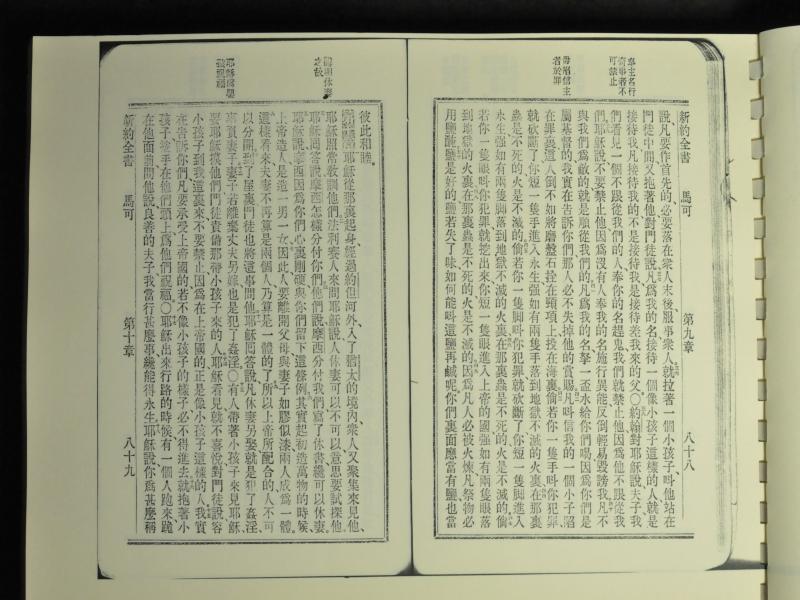 新約全書 馬可 第九章 八十八
奉主名行奇事者不可禁止
毋陷信主者於罪
說凡要作首先的必要落在衆人末後服事衆人就拉著一個小孩子呌他站在
門徒中間又抱著他對門徒說凡爲我的名接待一個像小孩子這樣的人就是
接待我凡接待我的不是接待我是接待差我來的父〇約翰對耶穌說夫子我
們看見一個不跟從我們的人奉你的名趕鬼我們就禁止他因爲他不跟從我
們耶穌說不要禁止他因爲没有人奉我的名施行異能反倒輕易毀謗我凡不
與我們爲敵的就是順從我們的凡爲我的名拏一盃水給你們喝因爲你們是
屬基督的我實在告訴你們那人必不失掉他的賞賜凡呌信我的一個小子陷
在罪裏這人倒不如將磨盤石拴在頸項上投在海裏倘若你一隻手呌你犯罪
就砍斷了你短一隻手進入永生强如有兩隻手落到地獄不滅的火裏在那裏
蟲是不死的火是不滅的倘若你一隻脚呌你犯罪就砍斷了你短一隻脚進入
永生强如有兩隻脚落到地獄不滅的火裏在那裏蟲是不死的火是不滅的倘
若你一隻眼呌你犯罪就挖出來你短一隻眼進入上帝的國强如有兩隻眼落
到地獄的火裏在那裏蟲是不死的火是不滅的因爲凡人必被火煉凡祭物必
用鹽醃鹽是好的鹽若失了味如何能呌這鹽再鹹呢你們裏面應當有鹽也當
彼此和睦
論明休妻之故
耶穌從那裏起身經過約但河外入了猶太的境內衆人又聚集來見他
耶穌照常敎訓他們法利賽人來問耶穌說人休妻可以不可以意思要試探他
耶穌回答說摩西怎樣分付你們他們說摩西分付我們寫了休書纔可以休妻
耶穌說摩西因爲你們心裏剛硬與你們留下這條例其實起初造萬物的時候
上帝造人是造一男一女因此人要離開父母與妻子如膠似漆兩人成爲一體
這樣看來夫妻不再算是兩個人乃算是一體的了所以上帝所配合的人不可
以分開到了屋裏門徒也將這事問他耶穌回答說凡休妻另娶就是犯了姦淫
辜負妻子妻子若離棄丈夫另嫁也是犯了姦淫〇有人帶著小孩子來見耶穌
要耶穌摸他們門徒責備那帶小孩子來的人耶穌看見就不喜悅對門徒說容
小孩子到我這裏來不要禁止因爲在上帝國的正是像小孩子這樣的人我實
在告訴你們凡要承受上帝國的若不像小孩子的樣子必不得進去就抱著小
孩子按手在他們頭上爲他們祝福〇耶穌出來行路的時候有一個人跑來跪
在他面前問他說良善的夫子我當行甚麼事纔能得永生耶穌說你爲甚麼稱
新約全書 馬可 第十章 八十九